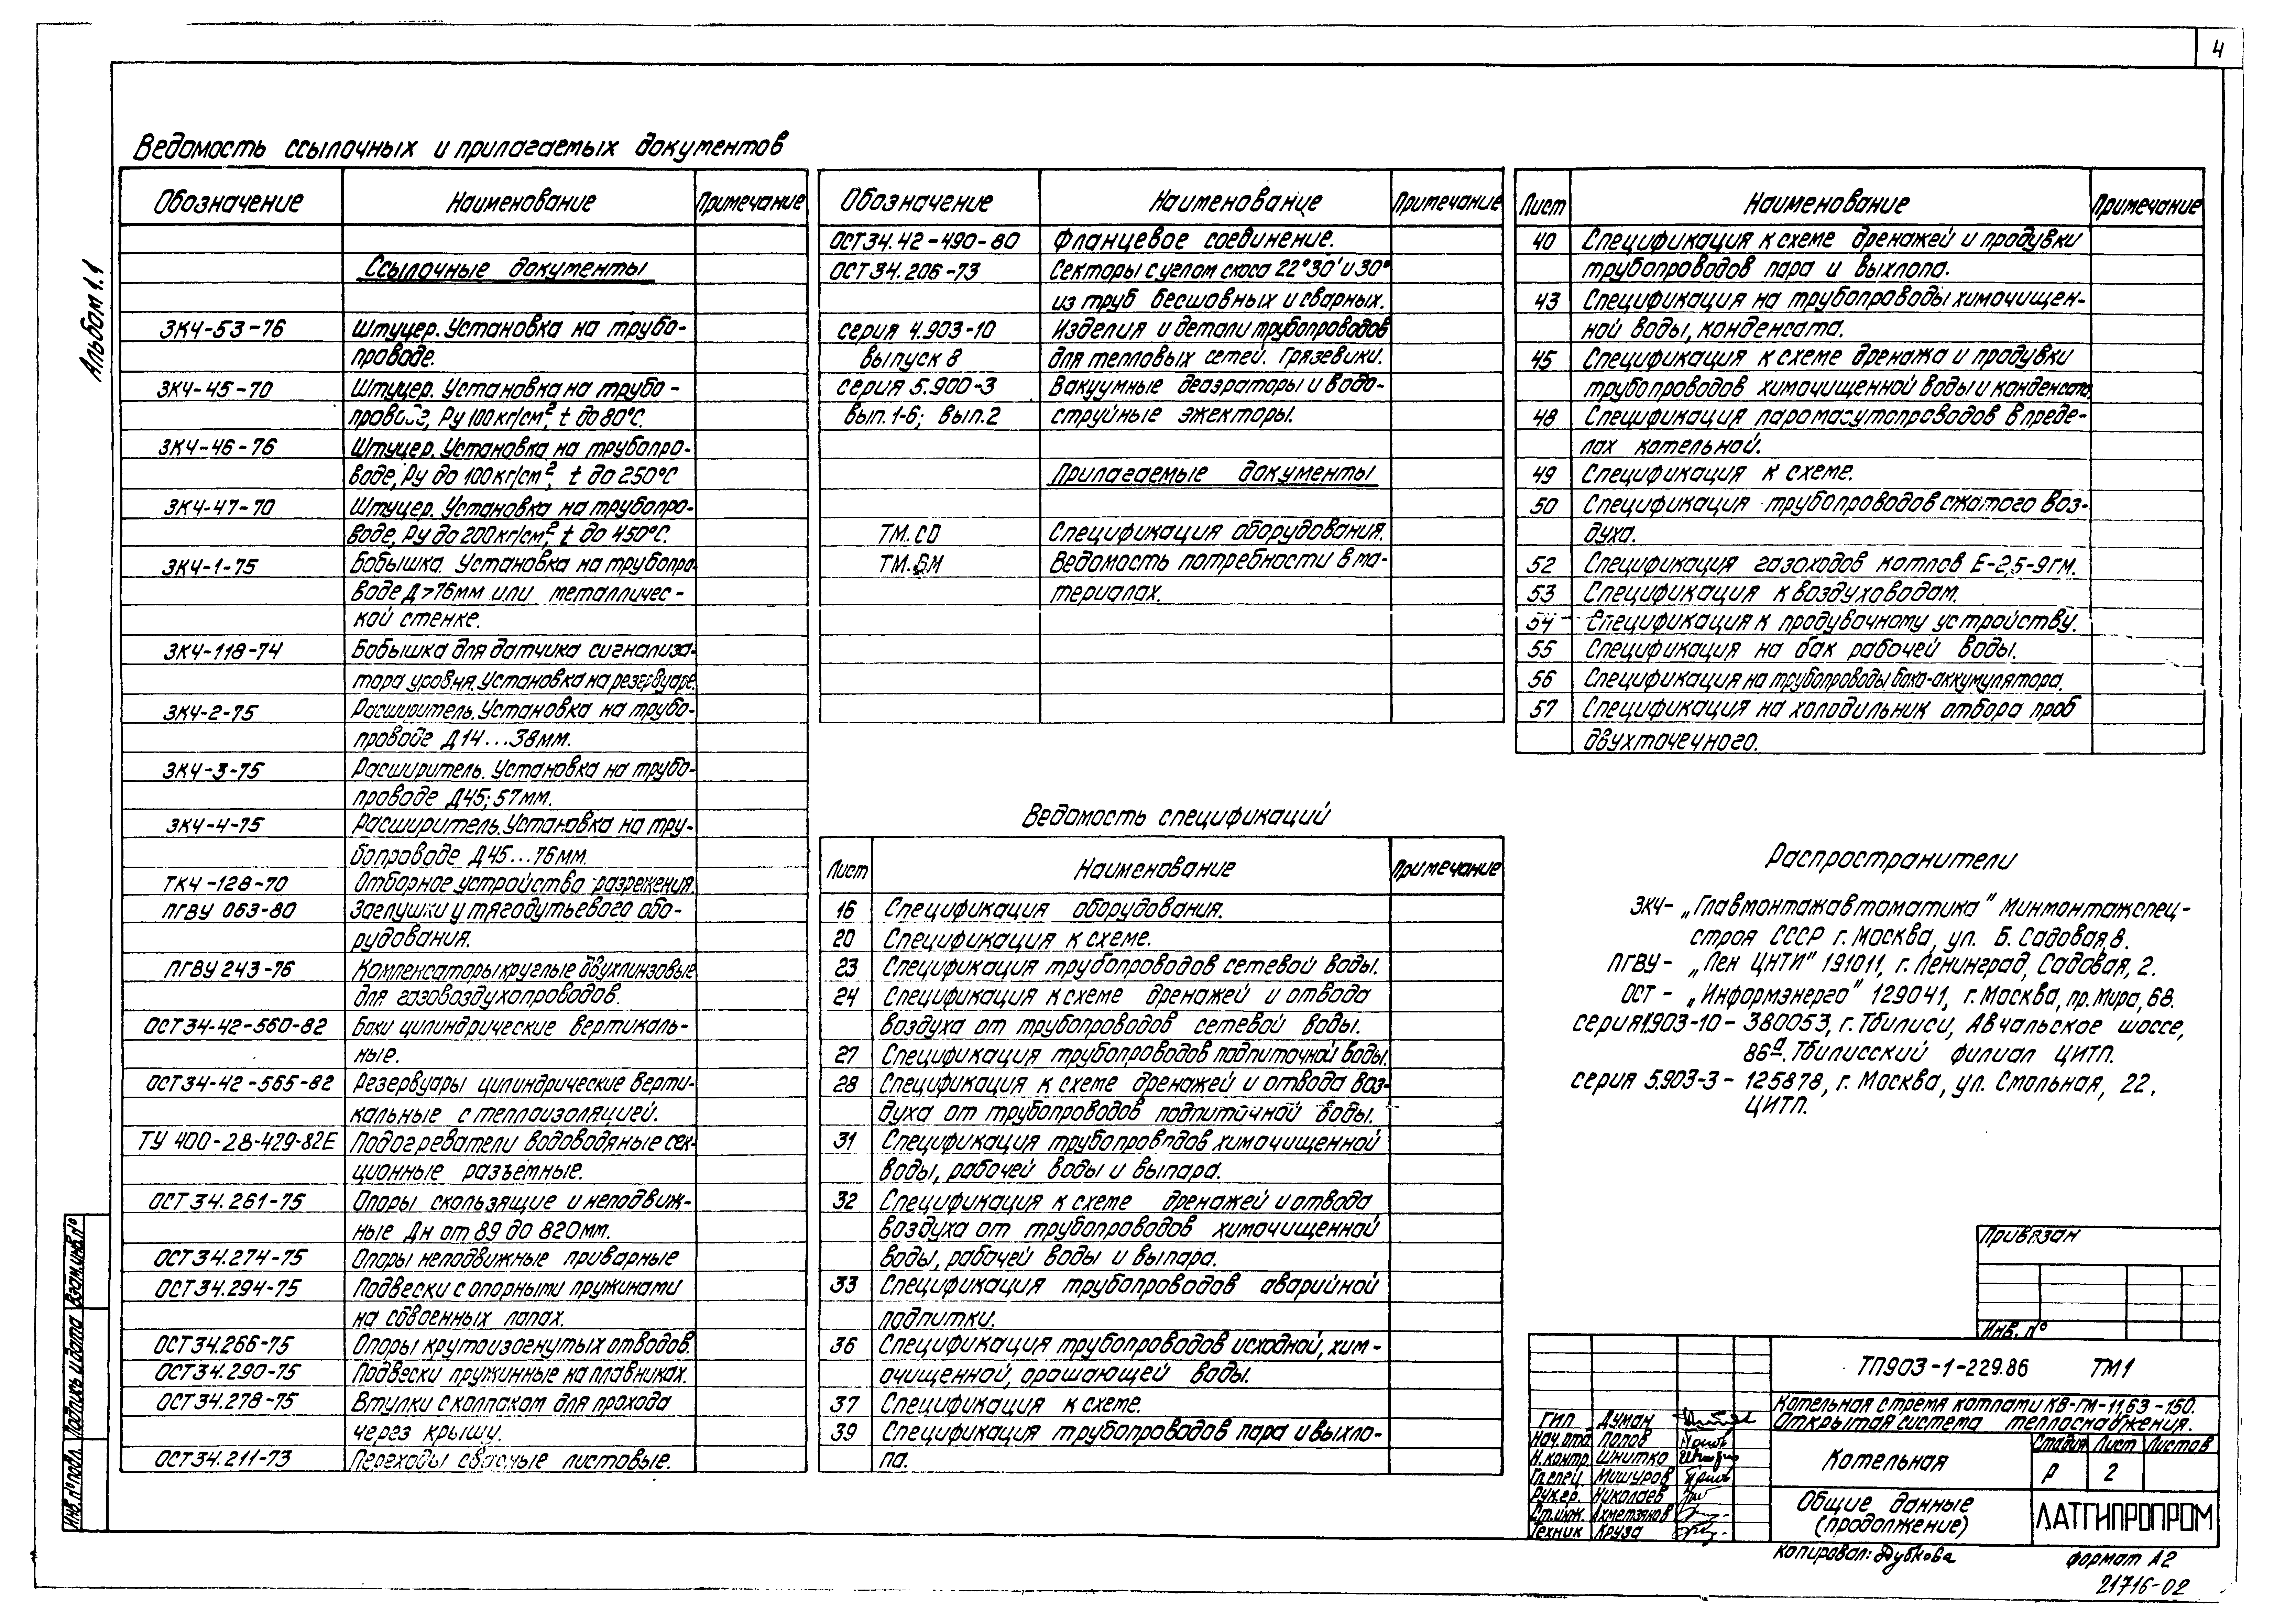 4
Альбом 1.1
Ведомость ссылочных и прилагаемых документов
Обозначение Наименование Примечание
Ссылочные документы
ЗКЧ-53-76 Штуцер. Установка на трубо-
проводе.
ЗКЧ-45-70 Штуцер. Установка на трубо-
проводе, Ру 100 кг/см², t до 80°С.
ЗКЧ-46-76 Штуцер. Установка на трубопро-
воде, Ру до 100 кг/см², t до 250°С
ЗКЧ-47-70 Штуцер. Установка на трубопро-
воде, Ру до 200 кг/см², t до 450°С.
ЗКЧ-1-75 Бобышка. Установка на трубопро-
воде Д>76мм или металличес-
кой стенке.
ЗКЧ-118-74 Бобышка для датчика сигнализа-
тора уровня. Установка на резервуаре.
ЗКЧ-2-75 Расширитель. Установка на трубо-
проводе Д14...38мм.
ЗКЧ-3-75 Расширитель. Установка на трубо-
проводе Д45; 57мм.
ЗКЧ-4-75 Расширитель. Установка на тру-
бопроводе Д45...76мм.
ТКЧ-128-70 Отборное устройство разрежения.
ПГВУ 063-80 Заглушки у тягодутьевого обо-
рудования.
ПГВУ 243-76 Компенсаторы круглые двухлинзовые
для газовоздухопроводов.
ОСТ34-42-560-82 Баки цилиндрические вертикаль-
ные.
ОСТ34-42-565-82 Резервуары цилиндрические верти-
кальные с теплоизоляцией.
ТУ 400-28-429-82Е Подогреватели водоводяные сек-
ционные разъемные.
ОСТ 34.261-75 Опоры скользящие и неподвиж-
ные Дн от 89 до 820мм.
ОСТ34.274-75 Опоры неподвижные приварные
ОСТ34.294-75 Подвески с опорными пружинами
на сдвоенных лапах.
ОСТ34.266-75 Опоры крутоизогнутых отводов.
ОСТ34.290-75 Подвески пружинные на плавниках.
ОСТ34.278-75 Втулки с колпаком для прохода
через крышу.
ОСТ34.211-73 Переходы сварные листовые.
Обозначение Наименование Примечание
ОСТ34.42-490-80 Фланцевое соединение.
ОСТ 34.206-73 Секторы с углом скоса 22°30' и 30°
из труб бесшовных и сварных.
серия 4.903-10 Изделия и детали трубопроводов
выпуск 8 для тепловых сетей. Грязевики.
серия 5.900-3 Вакуумные деаэраторы и водо-
вып. 1-6; вып.2 струйные эжекторы.
Прилагаемые документы
ТМ.СО Спецификация оборудования.
ТМ.ВМ Ведомость потребности в ма-
териалах.
Ведомость спецификаций
Лист Наименование Примечание
16 Спецификация оборудования.
20 Спецификация к схеме.
23 Спецификация трубопроводов сетевой воды.
24 Спецификация к схеме дренажей и отвода
воздуха от трубопроводов сетевой воды.
27 Спецификация трубопроводов подпиточной воды.
28 Спецификация к схеме дренажей и отвода воз-
духа от трубопроводов подпиточной воды.
31 Спецификация трубопроводов химочищенной
воды, рабочей воды и выпара.
32 Спецификация к схеме дренажей и отвода
воздуха от трубопроводов химочищенной
воды, рабочей воды и выпара.
33 Спецификация трубопроводов аварийной
подпитки.
36 Спецификация трубопроводов исходной, хим-
очищенной, орошающей воды.
37 Спецификация к схеме.
39 Спецификация трубопроводов пара и выхло-
па.
Лист Наименование Примечание
40 Спецификация к схеме дренажей и продувки
трубопроводов пара и выхлопа.
43 Спецификация на трубопроводы химочищен-
ной воды, конденсата.
45 Спецификация к схеме дренажа и продувки
трубопроводов химочищенной воды и конденсата.
48 Спецификация паромазутопроводов в преде-
лах котельной.
49 Спецификация к схеме.
50 Спецификация трубопроводов сжатого воз-
духа.
52 Спецификация газоходов котлов Е-2,5-9ГМ.
53 Спецификация к воздуховодам.
54 Спецификация к продувочному устройству.
55 Спецификация на бак рабочей воды.
56 Спецификация на трубопроводы бака-аккумулятора.
57 Спецификация на холодильник отбора проб
двухточечного.
Распространители
ЗКЧ- „Главмонтажавтоматика" Минмонтажспец-
строя СССР г. Москва, ул. Б. Садовая, 8.
ПГВУ- „Лен ЦНТИ" 191011, г. Ленинград, Садовая, 2.
ОСТ- „Информэнерго" 129041, г. Москва, пр. Мира, 68.
серия 1.903-10- 380053, г. Тбилиси, Авчальское шоссе,
86а. Тбилисский филиал ЦИТП.
серия 5.903-3- 125878, г. Москва, ул. Смольная, 22.
ЦИТП.
Привязан
Инв. №
ТП903-1-229.86 ТМ1
Котельная с тремя котлами КВ-ГМ-11,63-150.
Открытая система теплоснабжения.
ГИП Думан
Нач.отд. Попов
Н.контр. Шнитко
Гл.спец. Мишуров
Рук.гр. Николаев
Ст.инж. Ахметзянов
Техник Круза
Котельная
Стадия Лист Листов
Р 2
Общие данные
(продолжение)
ЛАТГИПРОПРОМ
Копировал: Дубкова
Формат А2
21716-02
Инв. № подл. Подпись и дата Взам. инв. №